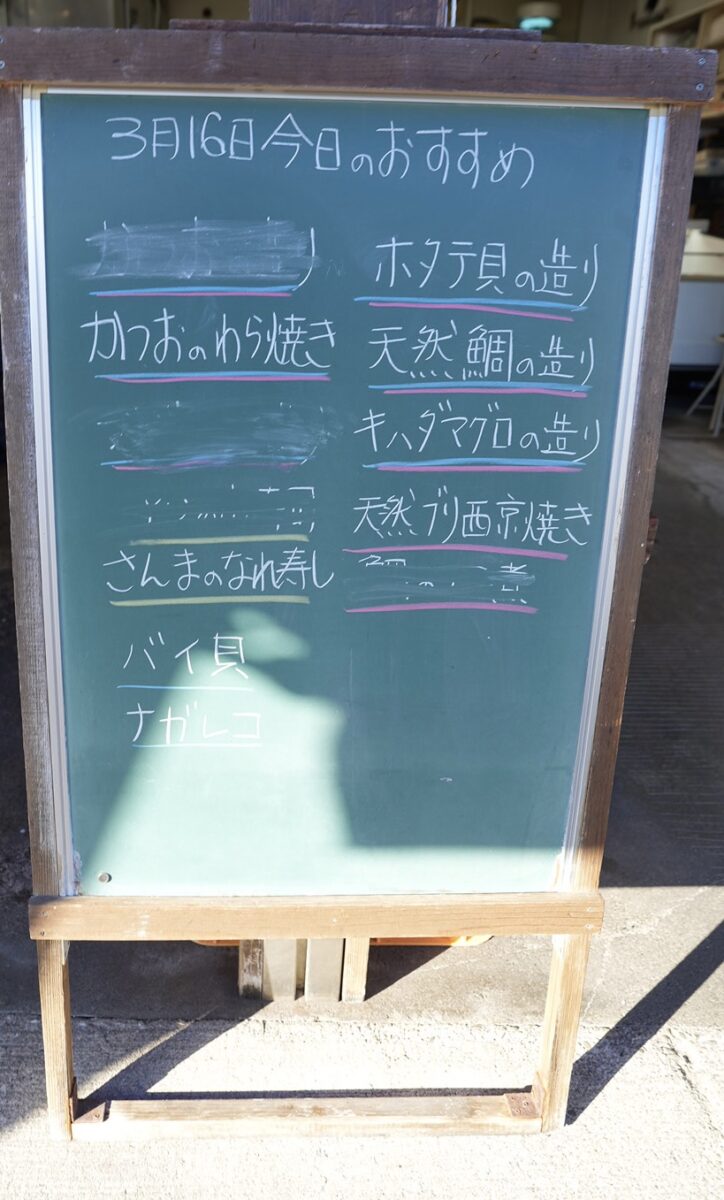 3月16日今日のおすすめ
かつおのわら焼き
さんまのなれ寿し
バイ貝
ナガレコ
ホタテ貝の造り
天然鯛の造り
キハダマグロの造り
天然ブリ西京焼き